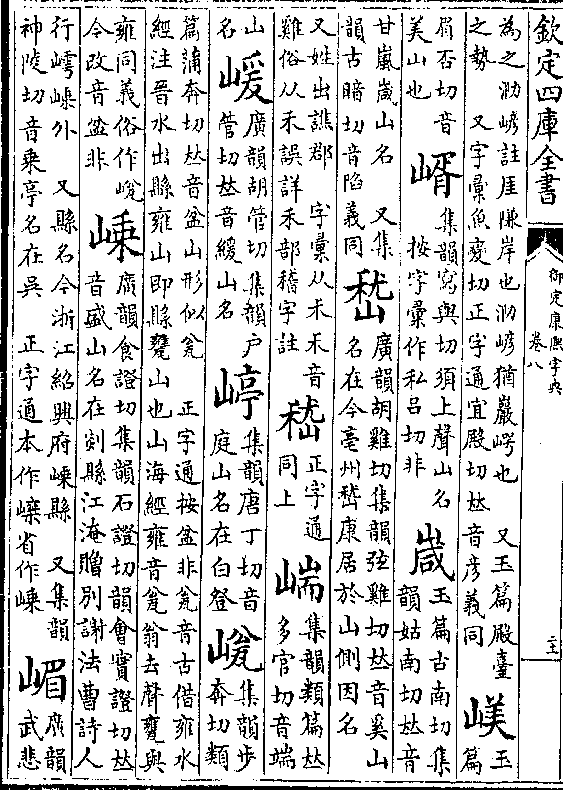 欽定四庫全書
御定康熙字典
卷八
為之泐㟽註厓隒岸也泐㟽猶巖崿也 又玉篇殿臺
之勢 又字彙魚變切正字通宜殿切𠀤音彥義同
嵄
玉
篇
屑否切音
美山也
集韻寫與切須上聲山名
按字彙作私呂切非
玉篇古南切集
韻姑南切𠀤音
甘嵐山名 又集
韻古暗切音陷義同
嵇
廣韻胡雞切集韻弦雞切𠀤音奚山
名在今亳州嵇康居於山側因名
又姓出譙郡 字彙从禾禾音
雞俗从禾誤詳禾部稽字註
嵇
正字通
同上
集韻類篇𠀤
多官切音端
山
名
嵈
廣韻胡管切集韻戶
管切𠀤音緩山名
嵉
集韻唐丁切音
庭山名在白登
集韻步
奔切類
篇蒲奔切𠀤音盆山形似瓮 正字通按盆非瓮音古借雍水
經注晉水出縣雍山即縣甕山也山海經雍音瓮翁去聲甕與
雍同義俗作
今改音盆非
嵊
廣韻食證切集韻石證切韻會實證切𠀤
音盛山名在剡縣江淹贈別謝法曹詩人
行嶀嵊外 又縣名今浙江紹興府嵊縣 又集韻
神陵切音乘亭名在吳 正字通本作省作嵊
嵋
廣韻
武悲